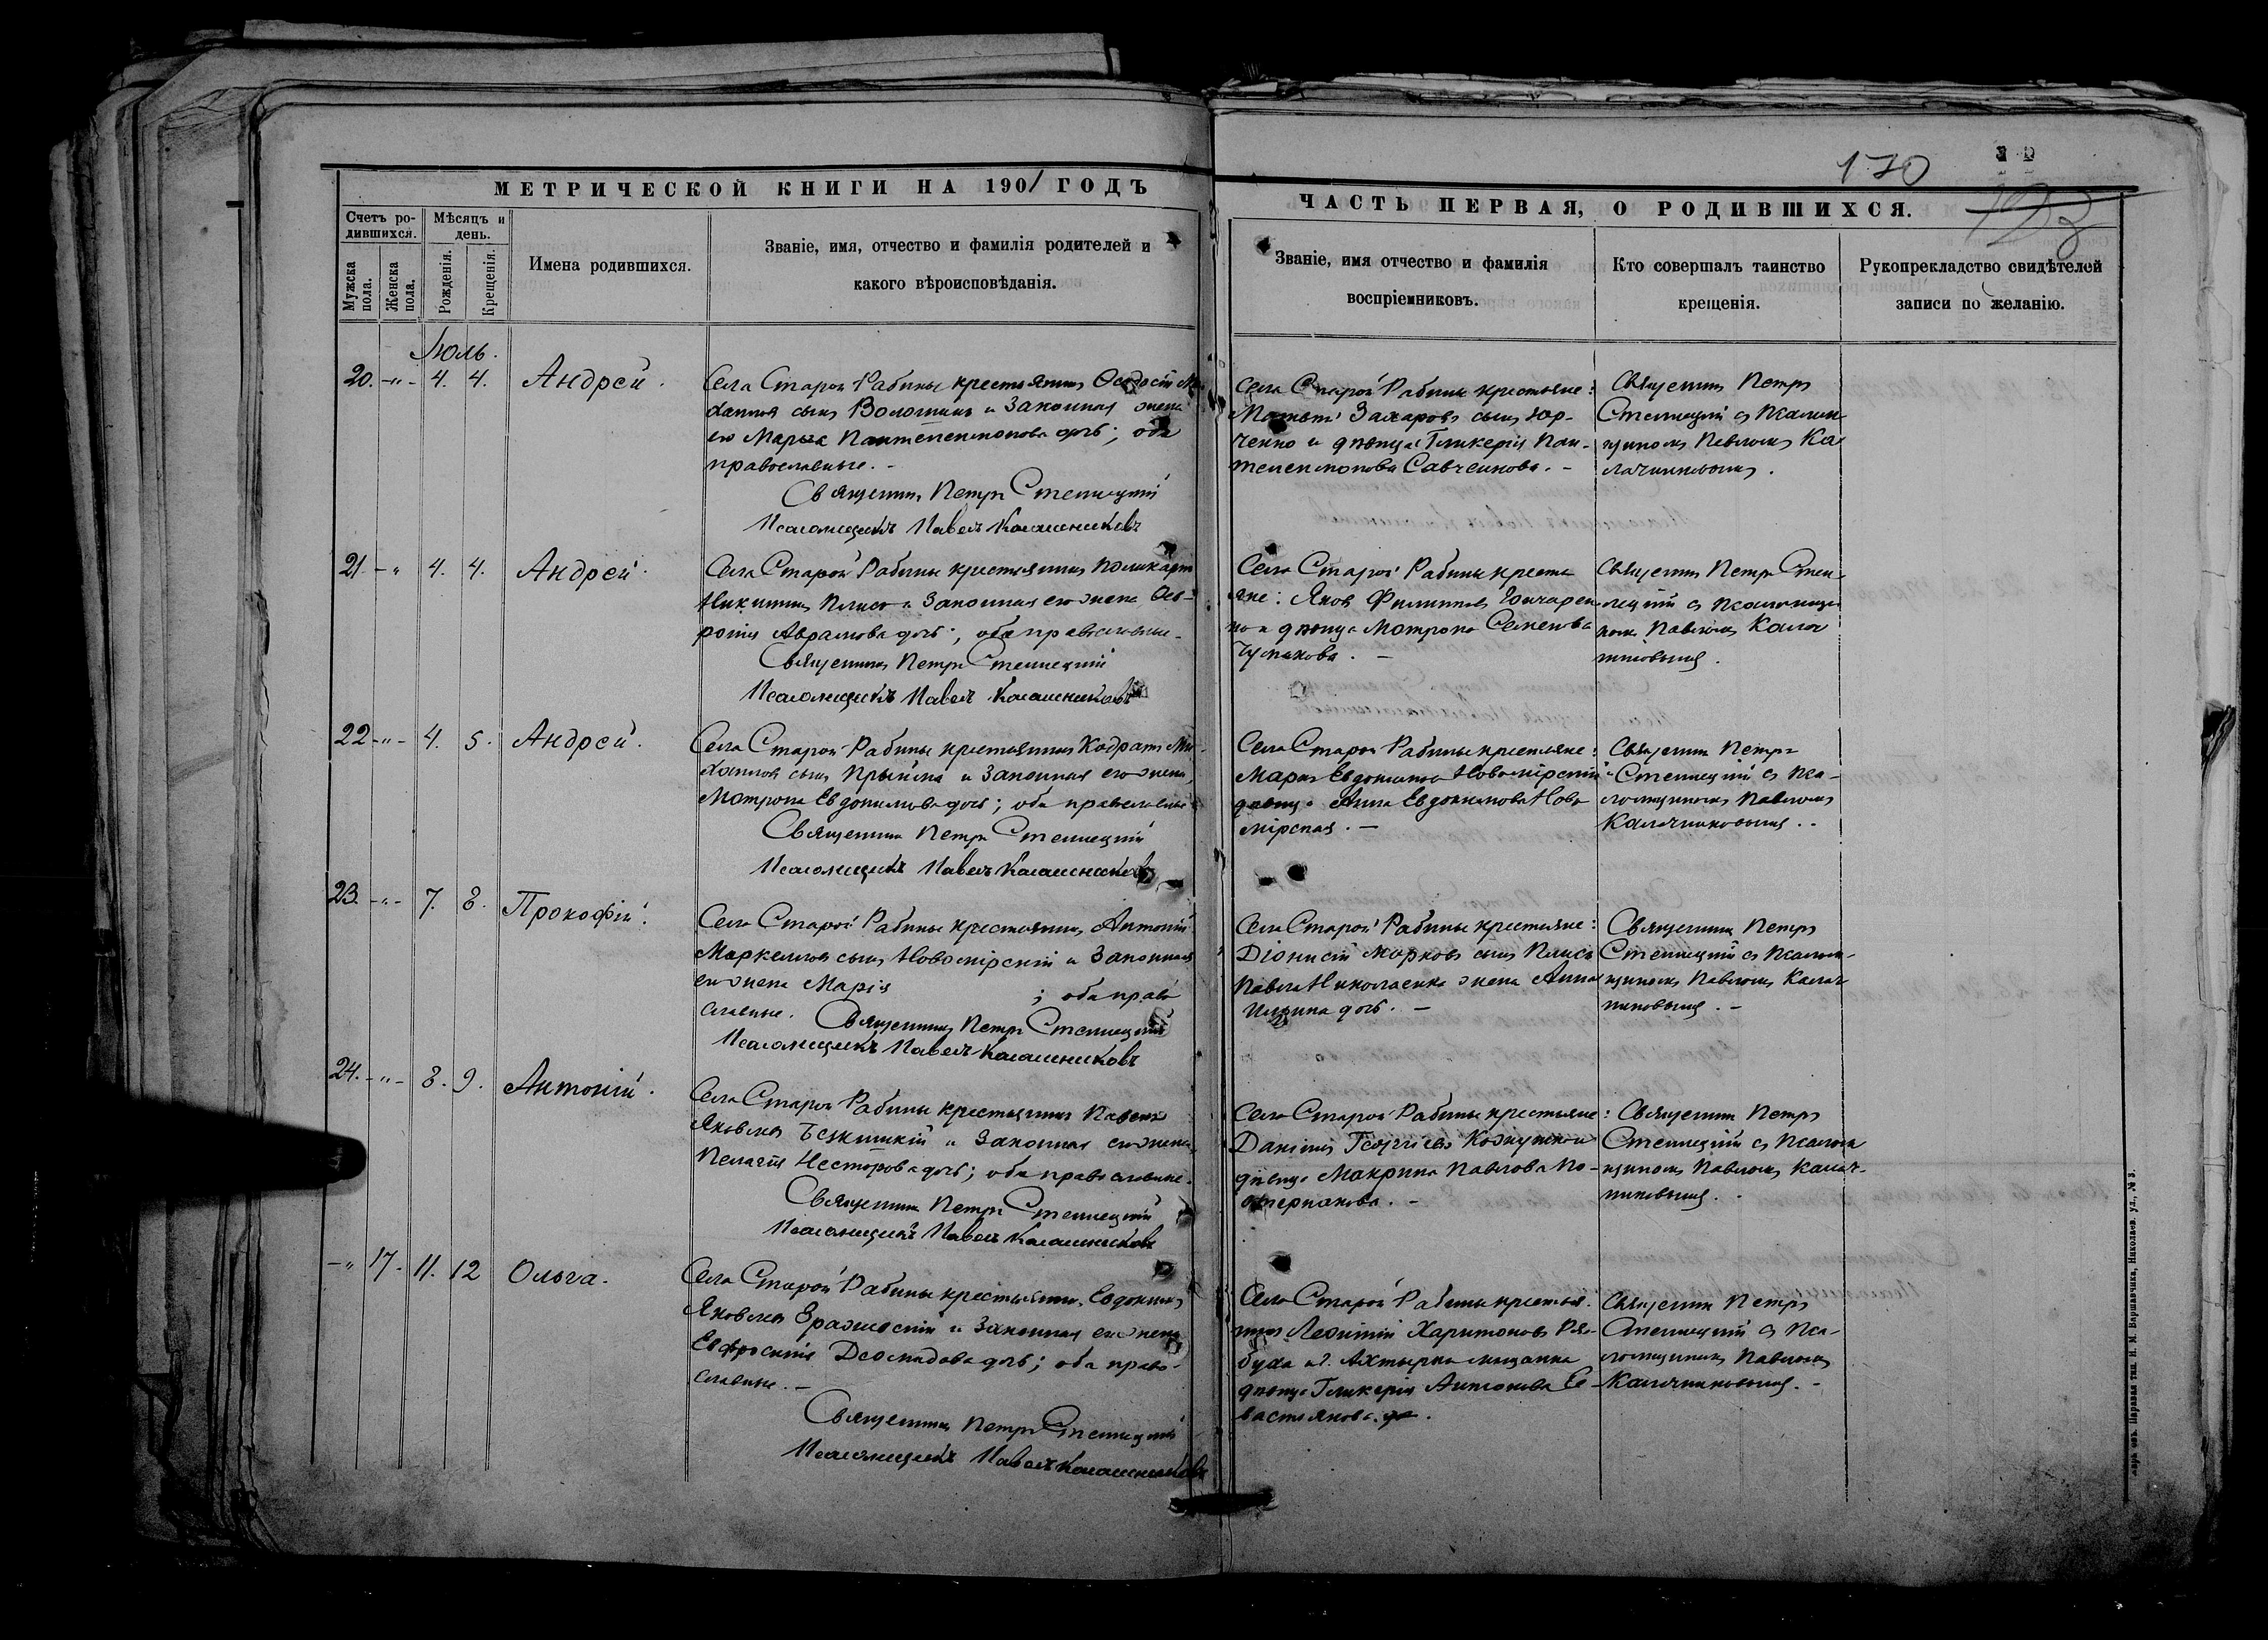 170
123
МЕТРИЧЕСКОЙ КНИГИ НА 1901 ГОДЪ
Счетъ ро-
дившихся.
Мужска
пола.
Женска
пола.
Мѣсяцъ и
день.
Рожденія.
Крещенія.
Имена родившихся.
Званіе, имя, отчество и фамилія родителей и
какого вѣроисповѣданія.
ЧАСТЬ ПЕРВАЯ, О РОДИВШИХСЯ.
Званіе, имя отчество и фамилія
воспріемниковъ.
Кто совершалъ таинство
крещенія.
Рукоприкладство свидѣтелей
записи по желанію.
Іюль.
20. -"- 4. 4. Андрей.
Села Старой Рабины крестьянинъ Ѳеодосій Ми-
хаиловъ сынъ Волошинъ и законная жена
его Марѳа Пантелеимонова дочь; оба
православные. -
Священникъ Петръ Стеллецкій
Псаломщикъ Павелъ Калашниковъ
Села Старой Рабины крестьяне:
Матвѣй Захаровъ сынъ Юр-
ченко и дѣвица Гликерія Пан-
телеимонова Савченкова. -
Священникъ Петръ
Стеллецкій съ псалом-
щикомъ Павломъ Ка-
лачниковымъ.
21. -" 4. 4. Андрей.
Села Старой Рабины крестьянинъ Поликарпъ
Никитинъ Плисъ и законная его жена Ѳев-
ронія Аврамова дочь; оба православные.
Священникъ Петръ Стеллецкій
Псаломщикъ Павелъ Калашниковъ
Села Старой Рабины крестья-
яне: Яковъ Филипповъ Гончарен-
ко и дѣвица Матрона Семенова
Чумакова. -
Священникъ Петръ Стел-
лецкій съ псаломщи-
комъ Павломъ Калач-
никовымъ.
22 -"- 4. 5. Андрей.
Села Старой Рабины крестьянинъ Кодратъ Ми-
хаиловъ сынъ Прыйма и законная его жена
Матрона Евдокимова дочь; оба православные
Священникъ Петръ Стеллецкій
Псаломщикъ Павелъ Калашниковъ
Села Старой Рабины крестьяне:
Марко Евдокимовъ Новомірскій и
дѣвица Анна Евдокимова Ново-
мірская. -
Священникъ Петръ
Стеллецкій съ пса-
ломщикомъ Павломъ
Калачниковымъ. -
23. -"- 7. 8. Прокофій.
Села Старой Рабины крестьянинъ Антоній
Маркелловъ сынъ Новомірскій и законная
его жена Марія ; оба право
славные. Священникъ Петръ Стеллецкій
Псаломщикъ Павелъ Калашниковъ
Села Старой Рабины крестьяне:
Діонисій Марковъ сынъ Плисъ
Павла Николаенка жена Анна
Ильина дочь. -
Священникъ Петръ
Стеллецкій съ псалом-
щикомъ Павломъ Калач-
никовымъ. -
24. -"- 8. 9. Антоній.
Села Старой Рабины крестьянинъ Павелъ
Яковлевъ и законная его жена
Пелагія Несторова дочь; оба православные.
Священникъ Петръ Стеллецкій
Псаломщикъ Павелъ Калашниковъ
Села Старой Рабины крестьяне:
Даніилъ Георгіевъ и
дѣвица Макрина Павлова По-
Священникъ Петръ
Стеллецкій съ псалом-
щикомъ Павломъ Калач-
никовымъ.
-" 17. 11. 12 Ольга.
Села Старой Рабины крестьянинъ Евдокимъ
Яковлевъ и законная его жена
Евфросинія Деомидова дочь; оба право-
славные. -
Священникъ Петръ Стеллецкій
Псаломщикъ Павелъ Калашниковъ
Села Старой Рабины крестья-
нинъ Леонтій Харитоновъ Ря-
буха и г. Ахтырки мѣщанка
дѣвица Гликерія Антонова Се-
вастьянова.
Священникъ Петръ
Стеллецкій съ пса-
ломщикомъ Павломъ
Калачниковымъ. -
Паровая тип. И. М. Варшавчика, Николаев. ул., № 3.